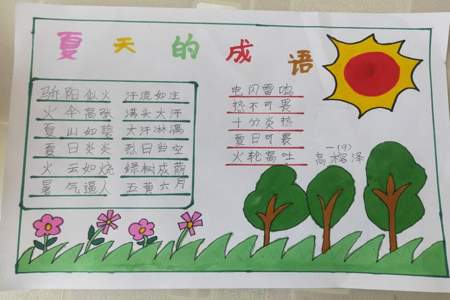 夏天的成语
骄阳似火 汗流如注
火伞高张 满头大汗
夏山如碧 大汗淋漓
夏日炎炎 烈日当空
火云如烧 绿树成荫
暑气逼人 五黄六月
电闪雷鸣
热不可畏
十分炎热
夏日可畏
火轮高吐
一(9)